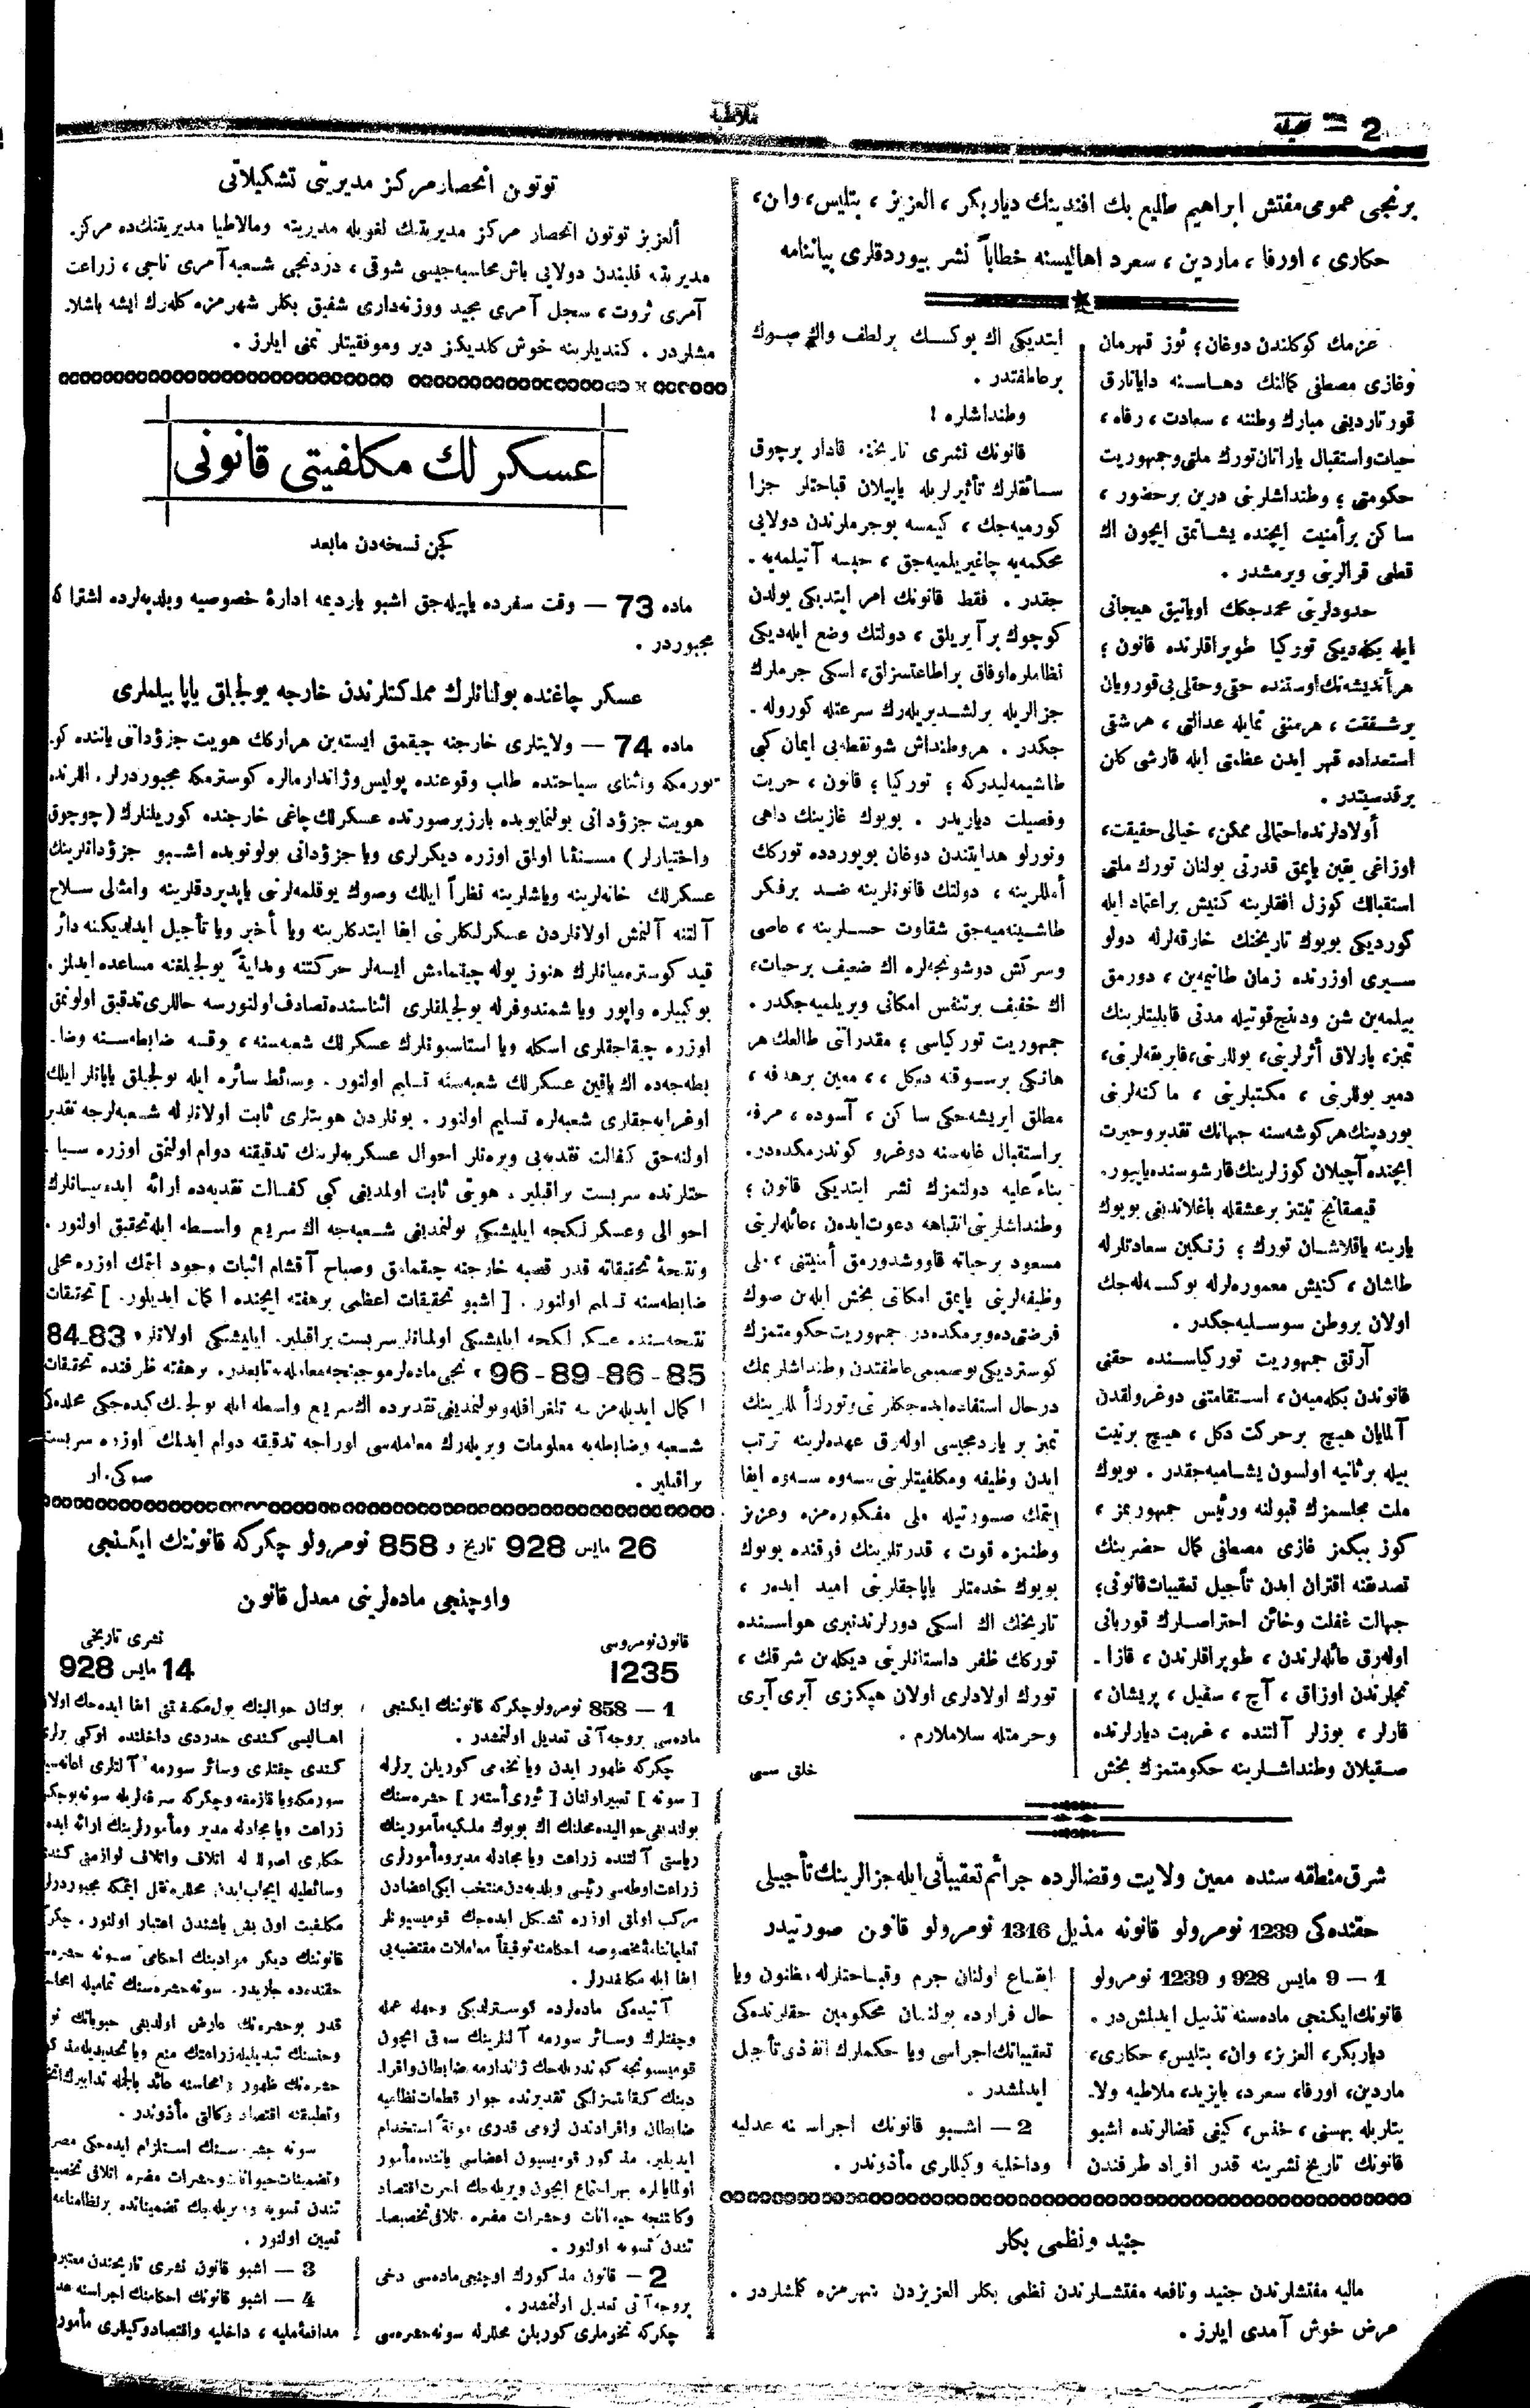 2 = صحیفه
ملاطیه
برنجی عمومی مفتش ابراهیم طالیع بك افندینك دیاربكر ، العزیز ، بتلیس، وان،
حكاری ، اورفا ، ماردین ، سعرد اهالیسنه خطاباً نشر بیوردقلری بیاننامه
عزمك كوكلندن دوغان ؛ ئوز قهرمان
وغازی مصطفی كمالنك دهاسنه دایانارق
قورتاردیغی مبارك وطننه ، سعادت ، رفاه ،
حیات واستقبال یاراتان تورك ملتی وجمهوریت
حكومتی ؛ وطنداشلرینی درین برحضور ،
ساكن برأمنیت ایچنده یشاتمق ایچون اك
قطعی قرارینی ویرمشدر .
حدودلرینی محمدجكك اویانیق هیجانی
ایله بكله دیكی توركیا طوپراقلرنده قانون ؛
هرأندیشه نك اوستنده حق وحقلی یی قورویان
برشفقت ، هرمنفی تمایله عدالتی ، هرشقی
استعداده قهر ایدن عظمتی ایله قارشی كلن
برقدسیتدر .
أولادلرنده احتمالی ممكن، خیالی حقیقت،
اوزاغی یقین یاپمق قدرتی بولنان تورك ملتی
استقبالك كوزل افقلرینه كنیش براعتماد ایله
كوردیكی بویوك تاریخنك خارقه لرله دولو
سیری اوزرنده زمان طانیمه ین ، دورمق
بیلمه ین شن ودینج قوتیله مدنی قابلیتلرینك
تمیز، پارلاق أثرلرینی، یوللرینی، فابریقه لرینی،
دمیر یوللرینی ، مكتبلرینی ، ماكنه لرینی
یوردینك هركوشه سنه جهانك تقدیر وحیرت
ایچنده آچیلان كوزلرینك قارشوسنده یاپیور.
قیصقانج تیتیز برعشقله باغلاندیغی بویوك
یارینه یاقلاشان تورك ؛ زنكین سعادتلرله
طاشان ، كنیش معموره لرله یوكسه له جك
اولان بروطن سوسلیه جكدر .
آرتق جمهوریت توركیاسنده حقنی
قانوندن بكله میه ن، استقامتنی دوغرولقدن
آلمایان هیچ برحركت دكل ، هیچ برنیت
بیله برثانیه اولسون یشامیه جقدر . بویوك
ملت مجلسمزك قبولنه ورئیس جمهوریمز ،
كوز ببكمز غازی مصطفی كمال حضرتینك
تصدیقنه اقتران ایدن تأجیل تعقیبات قانونی؛
جهالت غفلت وخائن احتراصلرك قوربانی
اوله رق عائله لرندن ، طوپراقلرندن ، قازا -
نجلرندن اوزاق ، آچ ، سفیل ، پریشان ،
قارلر ، بوزلر آلتنده ، غربت دیارلرنده
صیقیلان وطنداشلرینه حكومتمزك بخش
ایتدیكی اك یوكسك برلطف واك چوك
برعاطفتدر .
وطنداشلره !
قانونك نشری تاریخنه قادار برچوق
سائقلرك تأثیرلریله یاپیلان قباحتلر جزا
كورمیه جك ، كیمسه بوجرملرندن دولایی
محكمه یه چاغیریلمیه جق ، حبسه آتیلمه یه -
جقدر . فقط قانونك امر ایتدیكی یولدن
كوچوك بر آیریلق ، دولتك وضع ایله دیكی
نظاملره اوفاق براطاعتسزلق، اسكی جرملرك
جزالریله برلشدیریله رك سرعتله كوروله -
جكدر . هروطنداش شونقطه یی ایمان كبی
طاشیمه لیدركه ؛ توركیا ؛ قانون ، حریت
وفضیلت دیاریدر . بویوك غازینك داهی
ونورلو هدایتندن دوغان بویوردده توركك
أمللرینه ، دولتك قانونلرینه ضد برفكر
طاشینه میه جق شقاوت حسلرینه ، عاصی
وسركش دوشونجه لره اك ضعیف برحیات،
اك خفیف برتنفس امكانی ویریلمیه جكدر .
جمهوریت توركیاسی ؛ مقدراتی طالعك هر
هانكی برسوقنه دیكل ، ، معین برهدفه ،
مطلق ایریشه جكی ساكن ، آسوده ، مرفه
براستقبال غایه سنه دوغرو كوندرمكده در.
بناءً علیه دولتمزك نشر ایتدیكی قانون ؛
وطنداشلرینی انتباهه دعوت ایده ن ، عائله لرینی
مسعود برحیاته قاووشدورمق أمنیتنی ، ملی
وظیفه لرینی یاپمق امكانی بخش ایله ین صوك
فرصتی ده ویرمكده در. جمهوریت حكومتمزك
كوستردیكی بوصمیمی عاطفتدن وطنداشلریمك
درحال استفاده ایده جكلرینی وتورك أمللرینك
تمیز بر یاردمجیسی اوله رق عهده لرینه ترتب
ایدن وظیفه ومكلفیتلرینی سه وه سه وه ایفا
ایتمك صورتیله ملی مفكوره مزه وعزیز
وطنمزه قوت ، قدرتلرینك فوقنده بویوك
بویوك خدمتلر یاپاجقلرینی امید ایده ر ،
تاریخك اك اسكی دورلرندنبری هواسنده
توركك ظفر داستانلرینی دیكله ین شرقك ،
تورك اولادلری اولان هپكزی آیری آیری
وحرمتله سلاملارم .
خلق سسی
شرق منطقه سنده معین ولایت وقضالرده جرائم تعقیباتی ایله جزالرینك تأجیلی
حقنده كی 1239 نومرولو قانونه مذیل 1316 نومرولو قانون صورتیدر
1 — 9 مایس 928 و 1239 نومرولو
قانونك ایكنجی ماده سنه تذییل ایدلمش در .
دیاربكر، العزیز، وان، بتلیس، حكاری،
ماردین، اورفا، سعرد، بایزید، ملاطیه ولا-
یتلریله بهسنی ، خنس، كیغی قضالرنده اشبو
قانونك تاریخ نشرینه قدر افراد طرفندن
ایقاع اولنان جرم وقباحتلرله مظانون ویا
حال فرارده بولنان محكومین حقلرنده كی
تعقیباتك اجراسی ویا حكملرك انفاذی تأجیل
ایدلمشدر .
2 — اشبو قانونك اجراسنه عدلیه
وداخلیه وكیللری مأذوندر .
جنید ونظمی بكلر
مالیه مفتشلرندن جنید ونافعه مفتشلرندن نظمی بكلر العزیزدن شهرمزه كلمشلردر .
عرض خوش آمدی ایلرز .
توتون انحصار مركز مدیریتی تشكیلاتی
ألعزیز توتون انحصار مركز مدیریتنك لغویله مدیریته ومالاطیا مدیریتنك ده مركز
مدیریته قلبندن دولایی باش محاسبه جیسی شوقی ، دردنجی شعبه آمری ناجی ، زراعت
آمری ثروت ، سجل آمری مجید ووزنه داری شفیق بكلر شهرمزه كله رك ایشه باشلا-
مشلردر . كندیلرینه خوش كلدیكز دیر وموفقیتلر تمنی ایلرز .
عسكرلك مكلفیتی قانونی
كچن نسخه دن مابعد
ماده 73 — وقت سفرده یاپیله جق اشبو یاردیمه ادارۀ خصوصیه وبلدیه لرده اشتراكه
مجبوردر .
عسكر چاغنده بولنانلرك مملكتلرندن خارجه یولجیلق یاپا بیلملری
ماده 74 — ولایتلری خارجنه چیقمق ایسته ین هراركك هویت جزؤدانی یاننده كو-
تورمكه واثنای سیاحتده طلب وقوعنده پولیس وژاندارمالره كوسترمكه مجبوردرلر. اللرنده
هویت جزؤدانی بولنمایوبده بارز برصورتده عسكرلك چاغی خارجنده كوریلنلرك (چوجوق
واختیارلر) مستثنا اولمق اوزره دیكرلری ویا جزؤدانی بولونوبده اشبو جزؤدانلرینك
عسكرلك خانه لرینه ویاشلرینه نظراً ایلك وصوك یوقلمه لرینی یاپدیردقلرینه وامثالی سلاح
آلتنه آلنمش اولانلردن عسكرلكلرینی ایفا ایتدكلرینه ویا تأخیر ویا تأجیل ایدلدیكنه دائر
قید كوستره میانلرك هنوز یوله چیقمامش ایسه لر حركتنه وبدایةً یولجیلغنه مساعده ایدلمز.
بوكبیلره واپور ویا شمندوفرله یولجیلقلری اثناسنده تصادف اولنورسه حاللری تدقیق اولونمق
اوزره چیقاجقلری اسكله ویا استاسیونلرك عسكرلك شعبه سنه ، یوقسه ضابطه سنه وضا-
بطه جه ده اك یاقین عسكرلك شعبه سنه تسلیم اولنور . وسائط سائره ایله یولجیلق یاپانلر ایلك
اوغرایه جقلری شعبه لره تسلیم اولنور . بونلردن هویتلری ثابت اولانلرله شعبه لرجه تقدیر
اولنه جق كفالت نقدیه یی ویره نلر احوال عسكریه لرینك تدقیقنه دوام اولنمق اوزره سیا-
حتلرنده سربست براقیلیر. هویتی ثابت اولمدیغی كبی كفالت نقدیه ده ارائه ایده میانلرك
احوالی وعسكرلكجه ایلیشیكی بولنمدیغی شعبه جه اك سریع واسطه ایله تحقیق اولنور .
ونتیجۀ تحقیقاته قدر قصبه خارجنه چیقمامق وصباح آقشام اثبات وجود ایتمك اوزره محلی
ضابطه سنه تسلیم اولنور . [ اشبو تحقیقات اعظمی برهفته ایچنده اكمال ایدیلور. ] تحقیقات
نتیجه سنده عسكرلكجه ایلیشیكی اولمانلر سربست براقیلیر. ایلیشیكی اولانلر 83ـ84
85 - 86 - 89 - 96 نجی ماده لر موجبنجه معامله یه تابعدر. برهفته ظرفنده تحقیقات
اكمال ایدیله مزسه تلغرافله وبولنمدیغی تقدیرده اك سریع واسطه ایله یولجینك كیده جكی محلده كی
شعبه وضابطه یه معلومات ویریله رك معامله سی اوراجه تدقیقه دوام ایدلمك اوزره سربست
براقیلیر .
صوكی وار
26 مایس 928 تاریخ و 858 نومرولو چكركه قانوننك ایكنجی
واوچنجی ماده لرینی معدل قانون
قانون نومروسی
1235
نشری تاریخی
14 مایس 928
1 — 858 نومرولو چكركه قانوننك ایكنجی
ماده سی بروجه آتی تعدیل اولنمشدر .
چكركه ظهور ایدن ویا تخمی كوریلن یرلرله
[ سونه ] تعبیر اولنان [ ئوری أستهر ] حشره سنك
بولندیغی حوالیده محلنك اك بویوك ملكیه مأمورینك
ریاستی آلتنده زراعت ویا مجادله مدیر ومأمورلری
زراعت اوطه سی رئیسی وبلدیه دن منتخب ایكی اعضادن
مركب اولمق اوزره تشكل ایده جك قومیسیونلر
تعلیماتنامۀ مخصوصه احكامنه توفیقاً معاملات مقتضیه یی
ایفا ایله مكلفدرلر .
آتیده كی ماده لرده كوسترلدیكی وجهله عمله
وچفتلرك وسائر سورمه آلتلرینك سوقی ایچون
قومیسیونجه كوندریله جك ژاندارمه ضابطان وافرا-
دینك كفایتسزلكی تقدیرنده جوار قطعات نظامیه
ضابطان وافرادندن لزومی قدری موقةً استخدام
ایدیلیر. مذكور قومیسیون اعضاسی یاننده مأمور
اولمایانلره بهر اجتماع ایچون ویریله جك اجرت اقتصاد
وكالتنجه حیوانات وحشرات مضره اتلافی تخصیصا-
تندن تسویه اولنور .
2 — قانون مذكورك اوچنجی ماده سی دخی
بروجه آتی تعدیل اولنمشدر .
چكركه تخوملری كوریلن محللرله سونه حشره سی
بولنان حوالینك یول مكلفیتنی ایفا ایده جك اولان
اهالیسی كندی حدودی داخلنده
كندی چفتلری وسائر سورمه آلتلری
سورمكه ویا قازمغه وچكركه سرفه لریله سونه بوجكلر
زراعت ویا مجادله مدیر ومأمورلرینك ارائه ایده
جكلری اصولله اتلاف واتلاف لوازمنی كندی
وسائطیله ایجاب ایدن محللره نقل ایتمكه مجبوردرلر
مكلفیت اون بش یاشندن اعتبار اولنور. چكركه
قانوننك دیگر موادینك احكامی سونه حشره سی
حقنده ده جاریدر. سونه حشره سنك تمامیله امحاسنه
قدر بوحشره نك عارض اولدیغی حبوباتك نوع
وجنسنك تبدیلیله زراعتك منع ویا تحدیدیله مذكور
حشره نك ظهور وامحاسنه عائد بالجمله تدابیرك اتخاذ
وتطبیقنه اقتصاد وكالتی مأذوندر .
سونه حشره سنك استلزام ایده جكی مصرف
وتضمینات حیوانات وحشرات مضره اتلافی تخصیصا
تندن تسویه وویریله جك تضمیناتده برنظامنامه
تعیین اولنور .
3 — اشبو قانون نشری تاریخندن معتبردر
4 — اشبو قانونك احكامنك اجراسنه عدلیه
مدافعۀ ملیه ، داخلیه واقتصاد وكیللری مأموردر